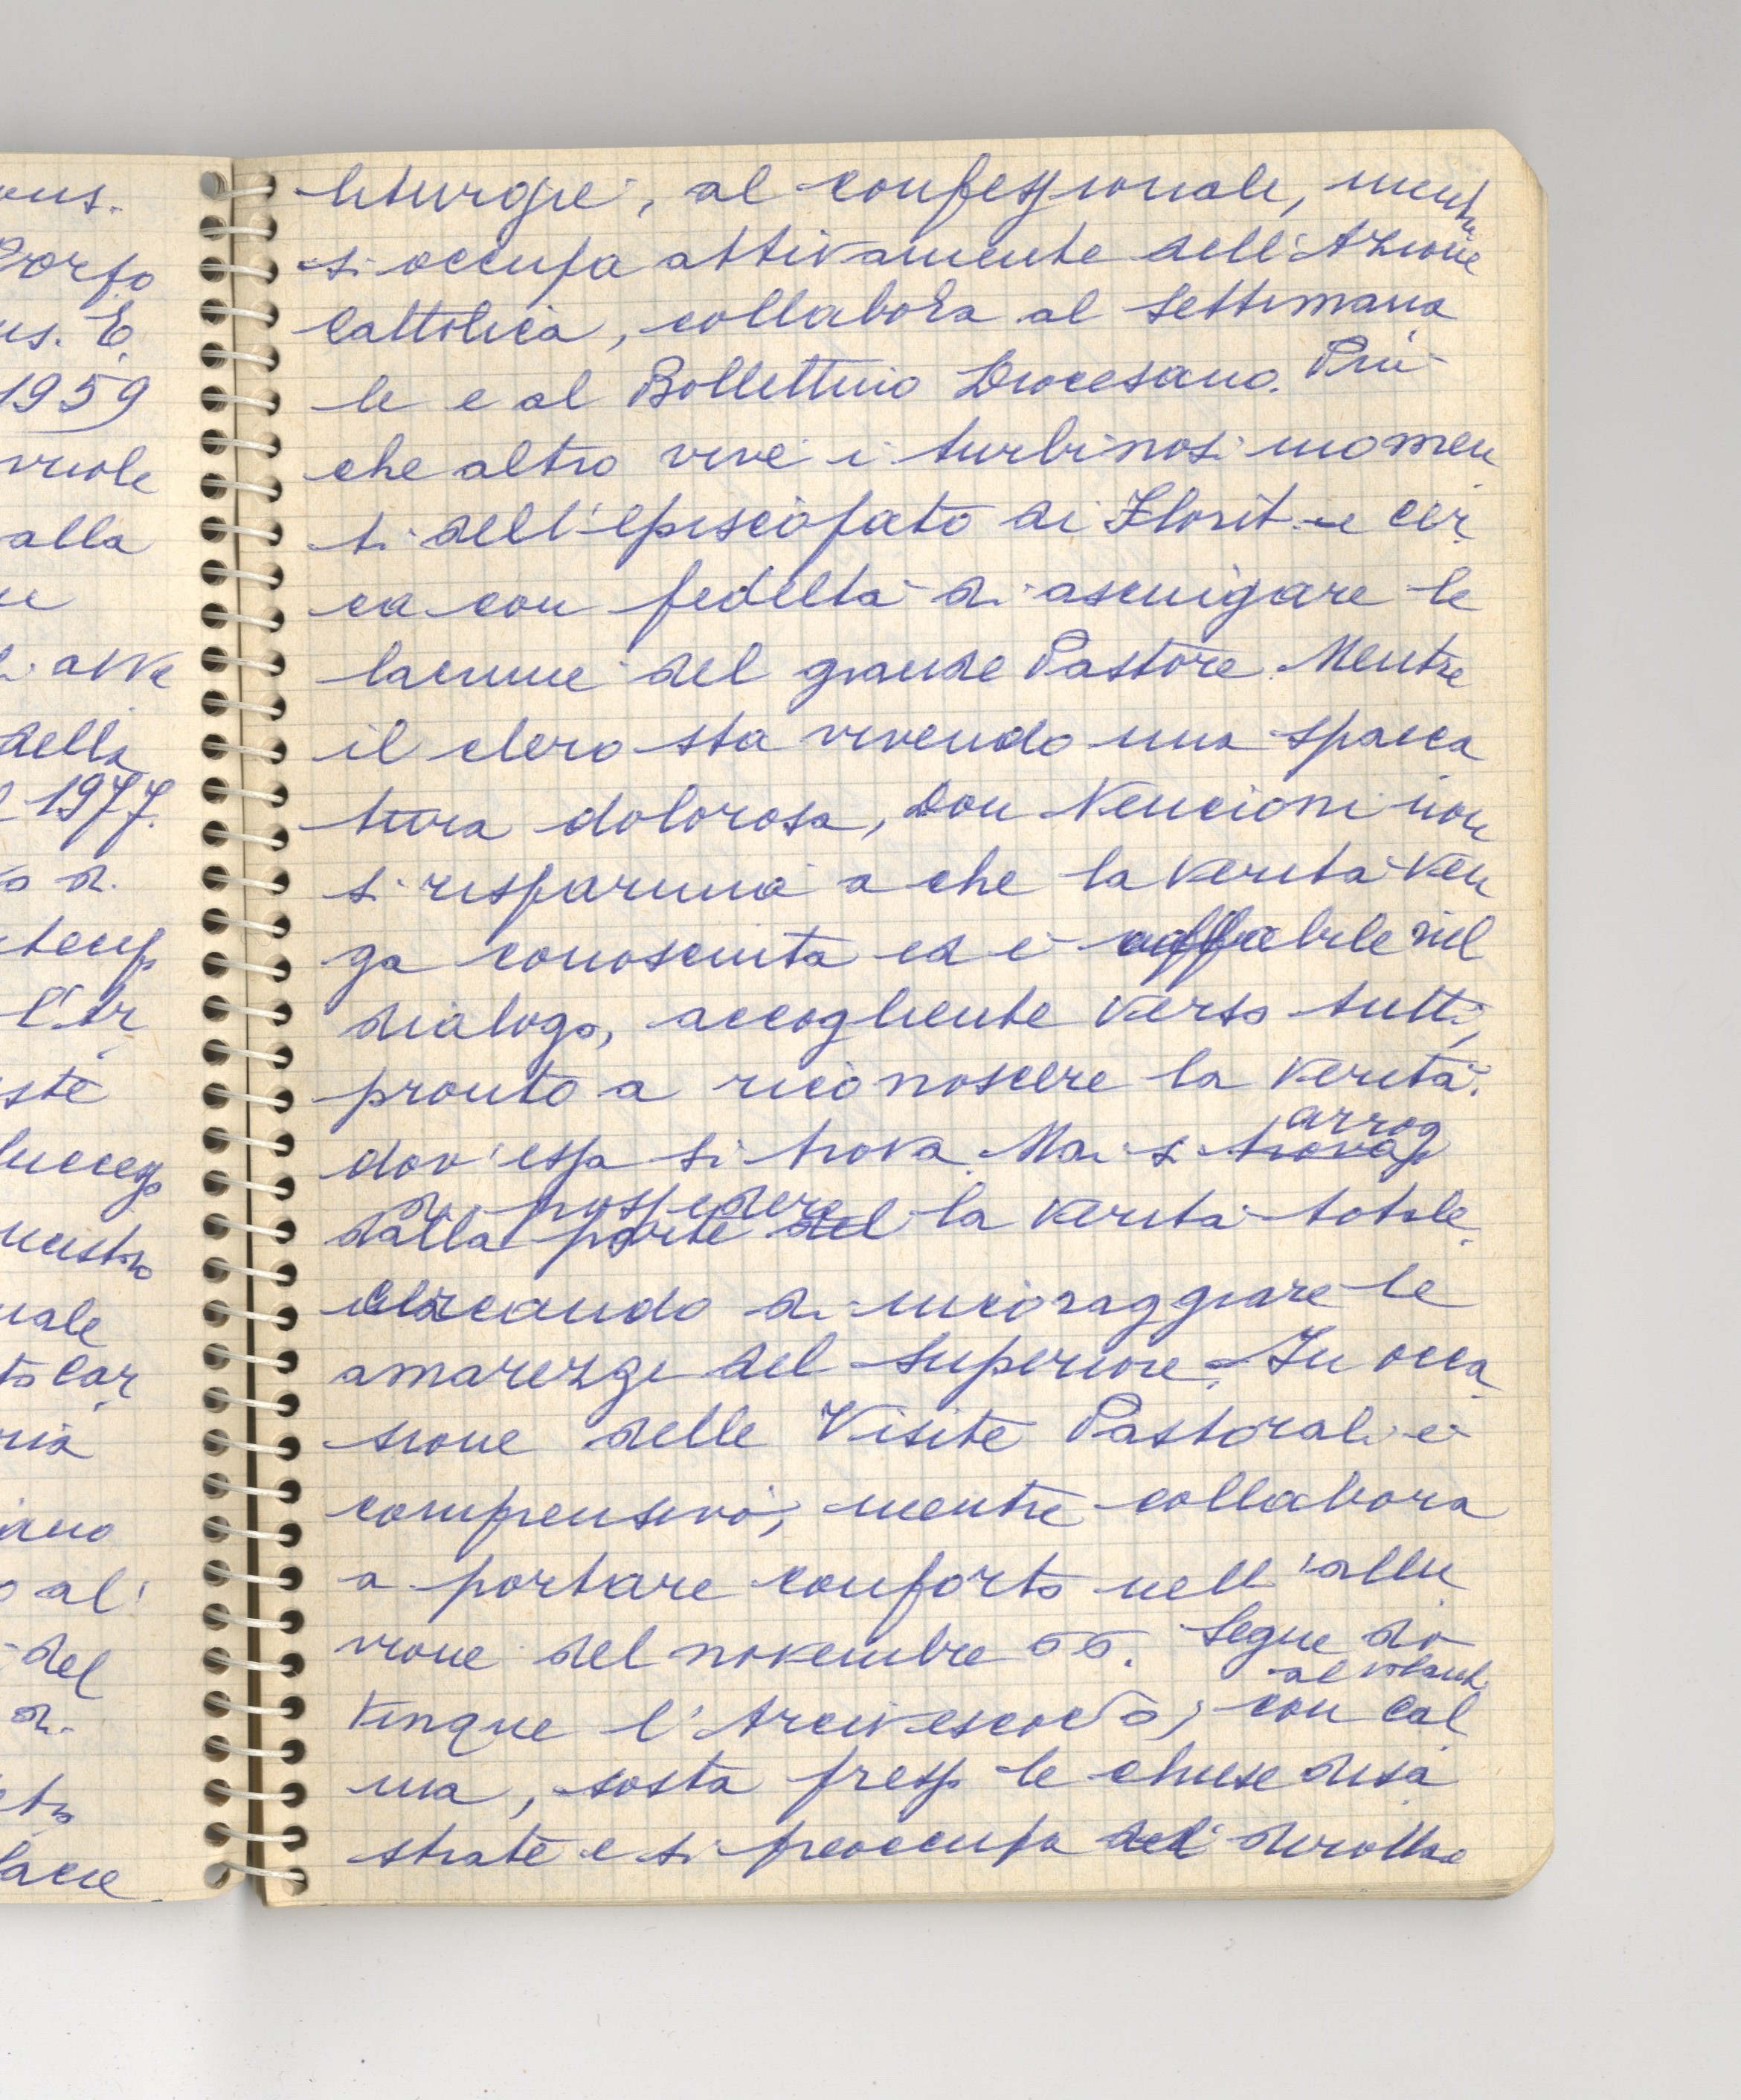 ous.
Porfo
us. E.
1959
vuole
alla
avve
della
1977.
temp
l'Ar
ste
successo
questo
uale
to Car
ria
iano
o al'
del
di
eto
liturgie, al confessionale, mentre
si occupa attivamente dell'Azione
Cattolica, collabora al settimana
le e al Bollettino Diocesano. Più
che altro vive i turbinosi momen
ti dell'episcopato di Florit e cer
ca con fedeltà di asciugare le
lacrime del grande Pastore. Mentre
il clero sta vivendo una spacca
tura dolorosa, Don Vencioni non
si risparmia a che la verità ven
ga conosciuta ed è affabile nel
dialogo, accogliente verso tutti,
pronto a riconoscere la verità
arrog
dov'essa si trova. Mai s
di possedere
dalla parte del la verità totale.
cercando di incoraggiare le
amarezze del Superiore. In occa
sione delle Visite Pastorali è
comprensivo, mentre collabora
a portare conforto nell'allu
vione del novembre 66. Segue do
al volante
vunque l'Arcivescovo, con cal
ma, sosta presso le chiese disa
strate e si preoccupa